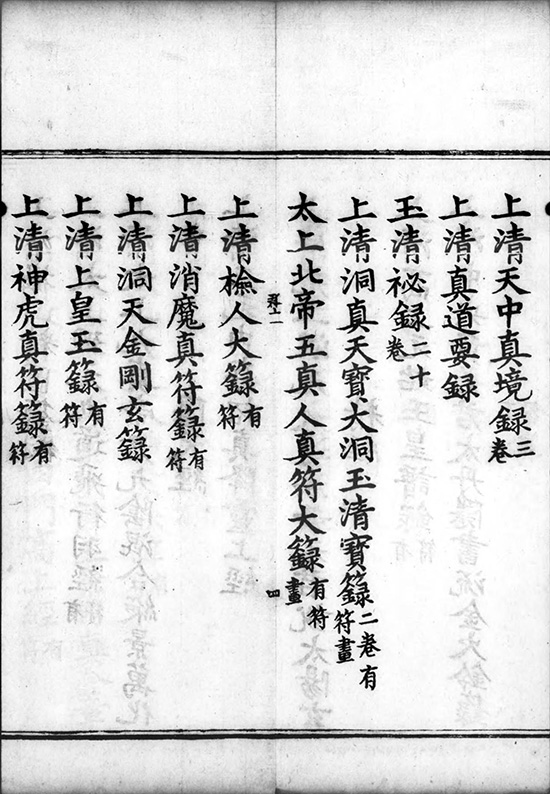 上清天中真境録三卷
上清真道要録
玉清祕録二十卷
上清洞真天寶大洞玉清寶籙二卷有符畫
太上北帝五真人真符大籙有符畫
四
上清檢人大籙有符
上清消魔真符籙有符
上清洞天金剛玄籙
上清上皇玉籙有符
上清神虎真符籙有符